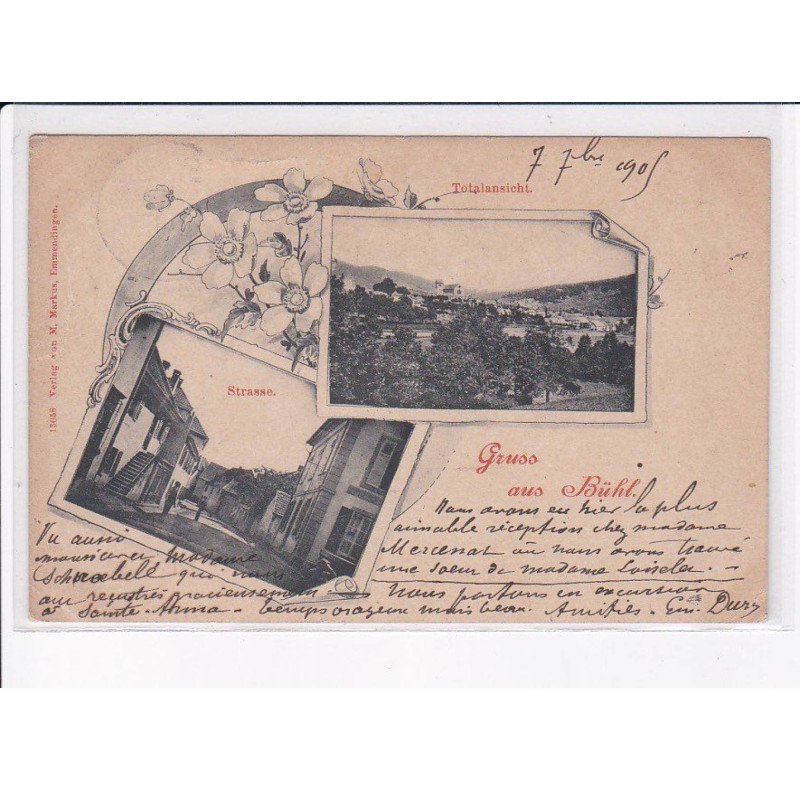 7 7bre 1905
Totalansicht.
13658 Verlag von M. Markus, Emmendingen.
Strasse.
Gruss
aus Bühl.
Nous avons eu hier la plus
aimable réception chez madame
Mercenat où nous avons trouvé
une soeur de madame Loiselet. -
Vu aussi
monsieur madame
qui nous
- Nous partons en excursion
à Sainte-Anna - temps orageux mais beau. Amitiés - Em. Dury